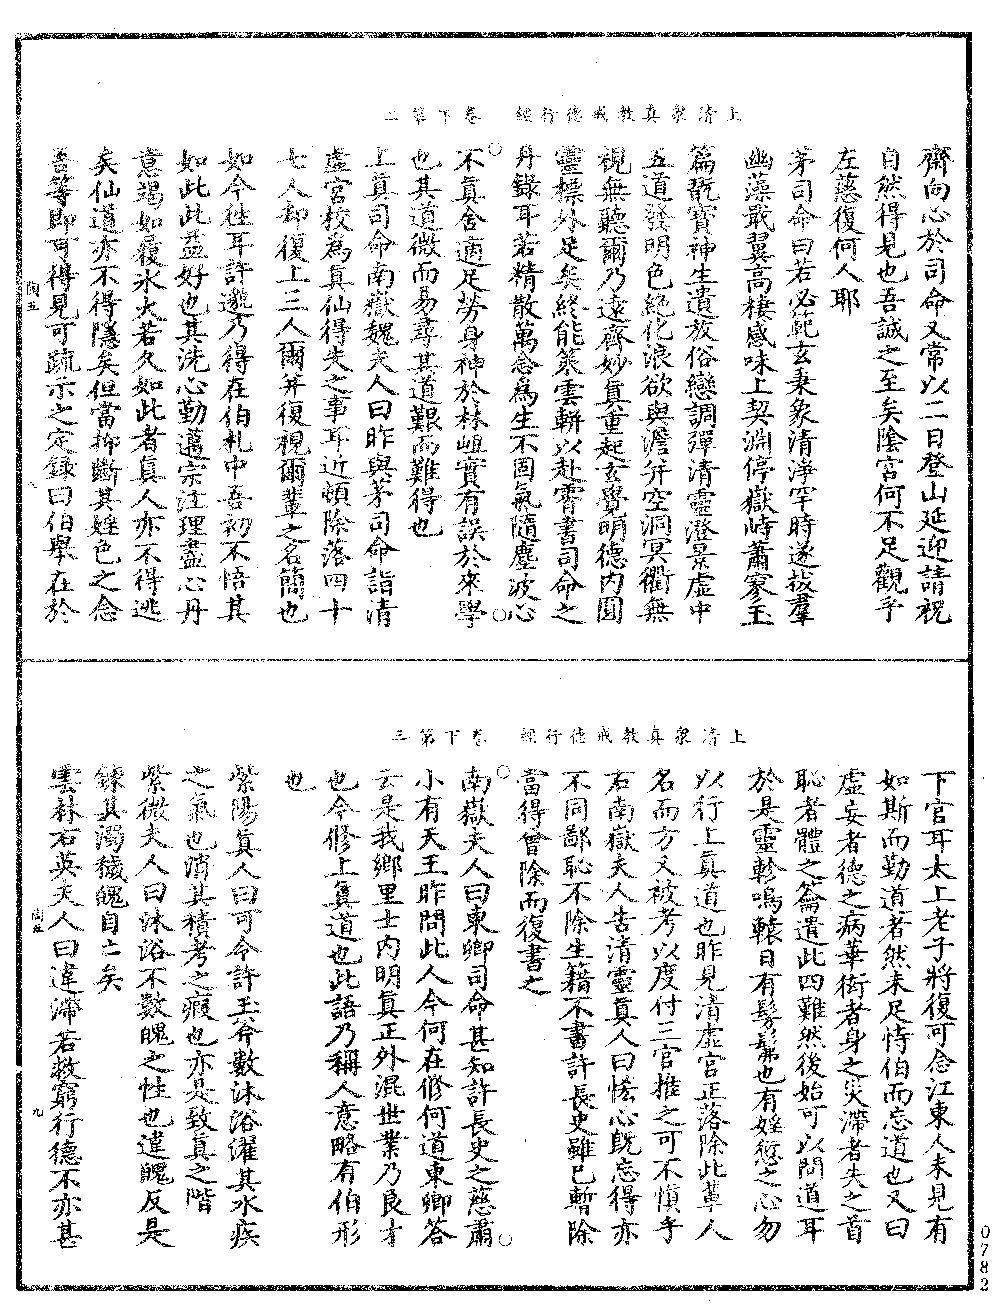 上清衆真教戒德行經　卷下第二
齋向心於司命又常以二日登山延迎請祝
自然得見也吾誠之至矣陰宮何不足觀乎
左慈復何人耶
茅司命曰若必範玄秉象清淨罕時遂拔羣
幽藻戢翼高棲感味上契淵停嶽峙蕭寥玉
篇翫寶神生遺放俗戀調彈清靈澄景虛中
五道發明色絕化浪欲與澹并空洞冥衢無
視無聽爾乃遠齊妙真重起玄覺明德內圓
靈標外足矣終能策雲軿以赴霄書司命之
丹錄耳若精散萬念為生不固氣隨塵波心
不真舍適足勞身神於林岨實有誤於來學
也其道微而易尋其道艱而難得也
上真司命南嶽魏夫人曰昨與茅司命詣清
虛宮校為真仙得失之事耳近頓除落四十
七人都復上三人爾并復視爾輩之名簡也
如今在耳許邈乃得在伯札中吾初不悟其
如此此益好也其洗心勤邁宗注理盡心丹
意竭如履冰火若久如此者真人亦不得逃
矣仙道亦不得隱矣但當抑斷其婬色之念
善等即可得見可疏示之定錄曰伯舉在於
陶五
上清衆真教戒德行經　卷下第三
下官耳太上老子將復可念江東人未見有
如斯而勤道者然未足恃伯而忘道也又曰
虛妄者德之病華衒者身之災滯者失之首
恥者體之籥遣此四難然後始可以問道耳
於是靈軫鳴轅日有髣髴也有婬愆之心勿
以行上真道也昨見清虛宮正落除此輩人
名而方又被考以度付三官推之可不慎乎
右南嶽夫人告清靈真人曰恡心既忘得亦
不同鄙恥不除生籍不書許長史雖已暫除
當得曾除而復書之
南嶽夫人曰東卿司命甚知許長史之慈肅
小有天王昨問此人今何在修何道東卿答
云是我鄉里士內明真正外混世業乃良才
也今修上真道也此語乃稱人意略有伯形
也
紫陽真人曰可令許玉斧數沐浴濯其水疾
之氣也消其積考之瑕也亦是致真之階
紫微夫人曰沐浴不數魄之性也違魄反是
鍊其濁穢魄自亡矣
雲林右英夫人曰違滯若救窮行德不亦甚
陶五
九
0782